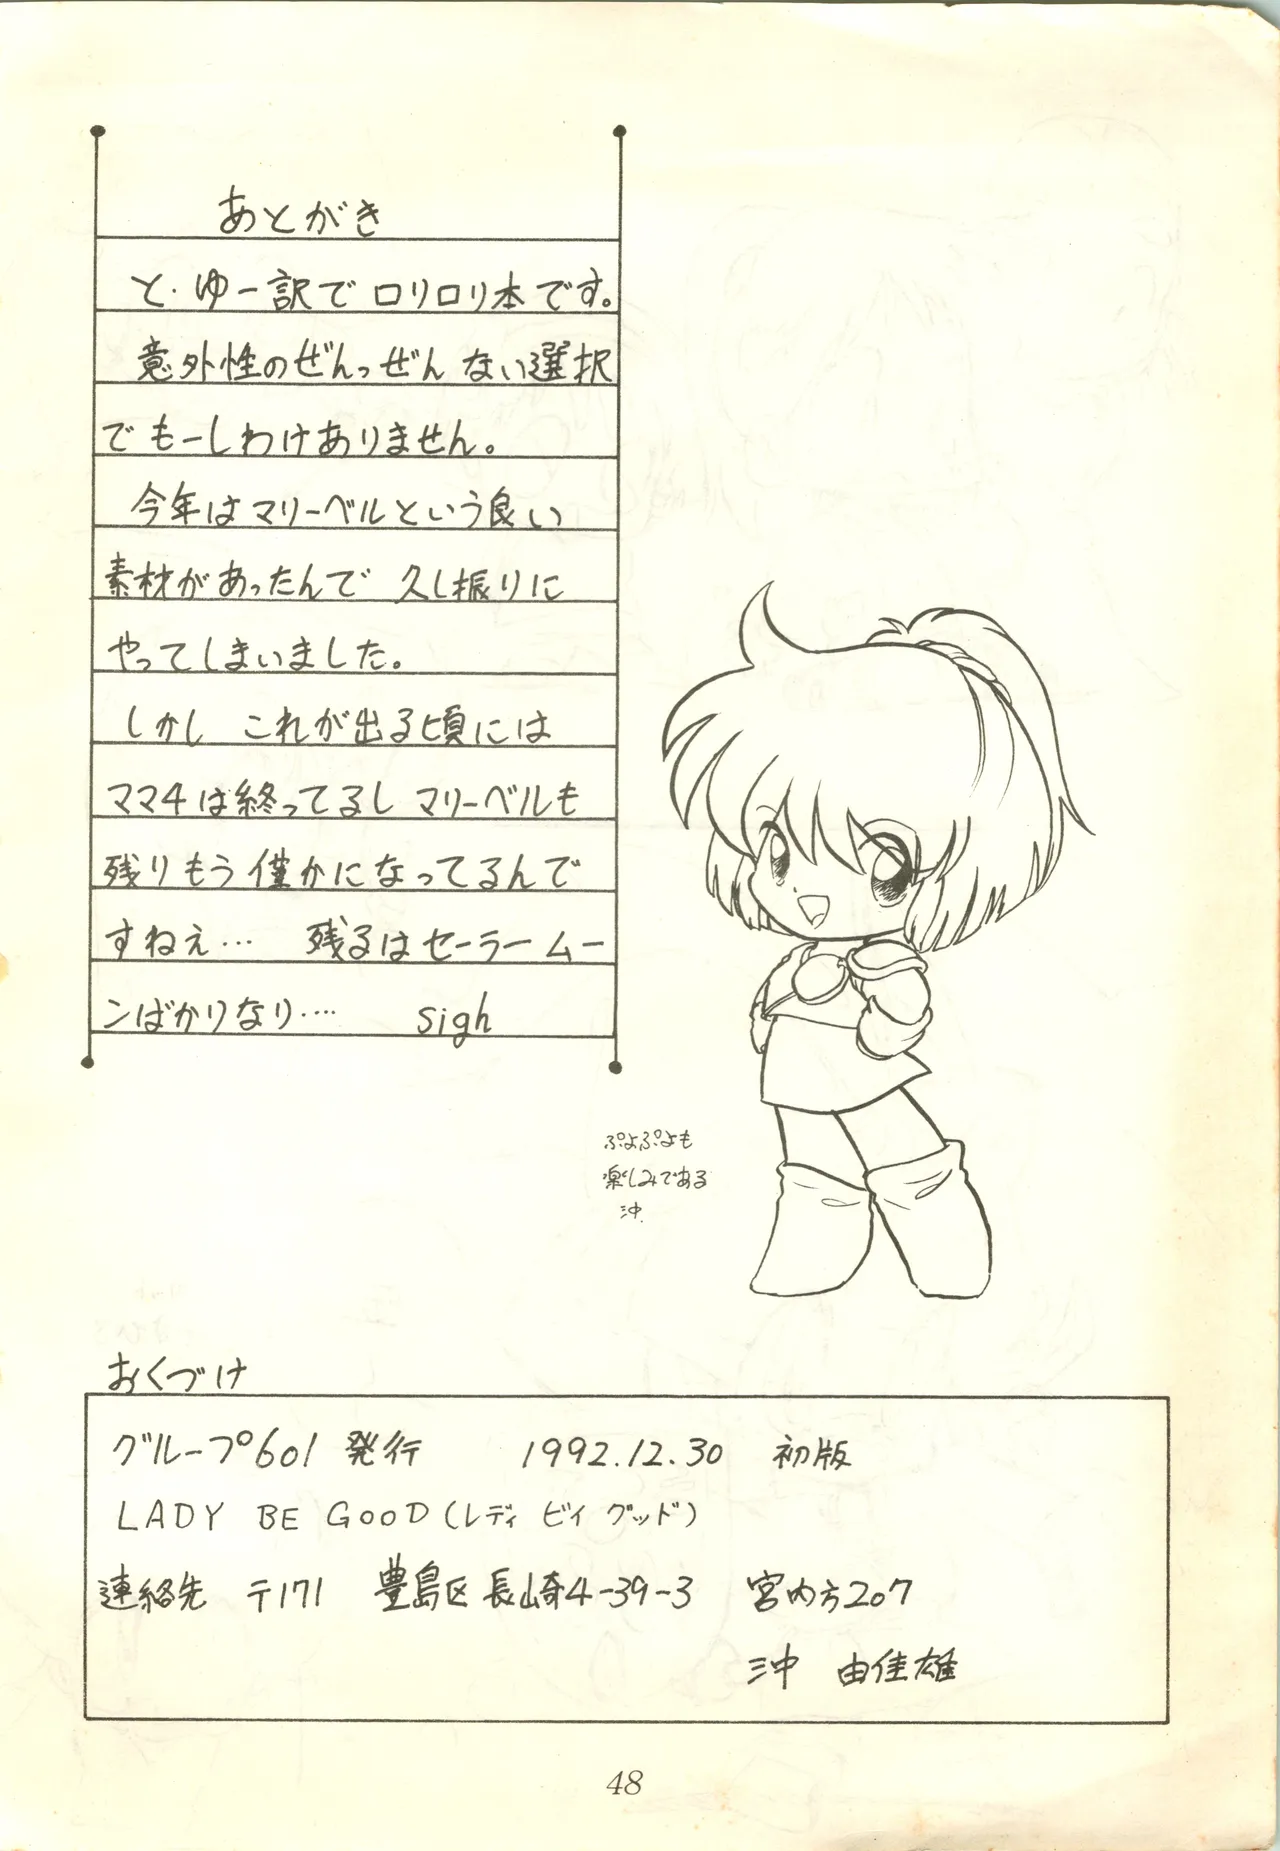 あとがき
と・ゆー訳でロリロリ本です。
意外性のぜんっぜんない選択
でもーしわけありません。
今年はマリーベルという良い
素材があったんで久し振りに
やってしまいました。
しかし これが出る頃には
ママ4は終ってるし マリーベルも
残りもう僅かになってるんで
すねえ… 残るはセーラームー
ンばかりなり…. sigh
ぷよぷよも
楽しみである
沖.
おくづけ
グループ601 発行 1992.12.30 初版
LADY BE GOOD(レディ ビィ グッド)
連絡先 〒171 豊島区長崎4-39-3 宮内方207
沖 由佳雄
48